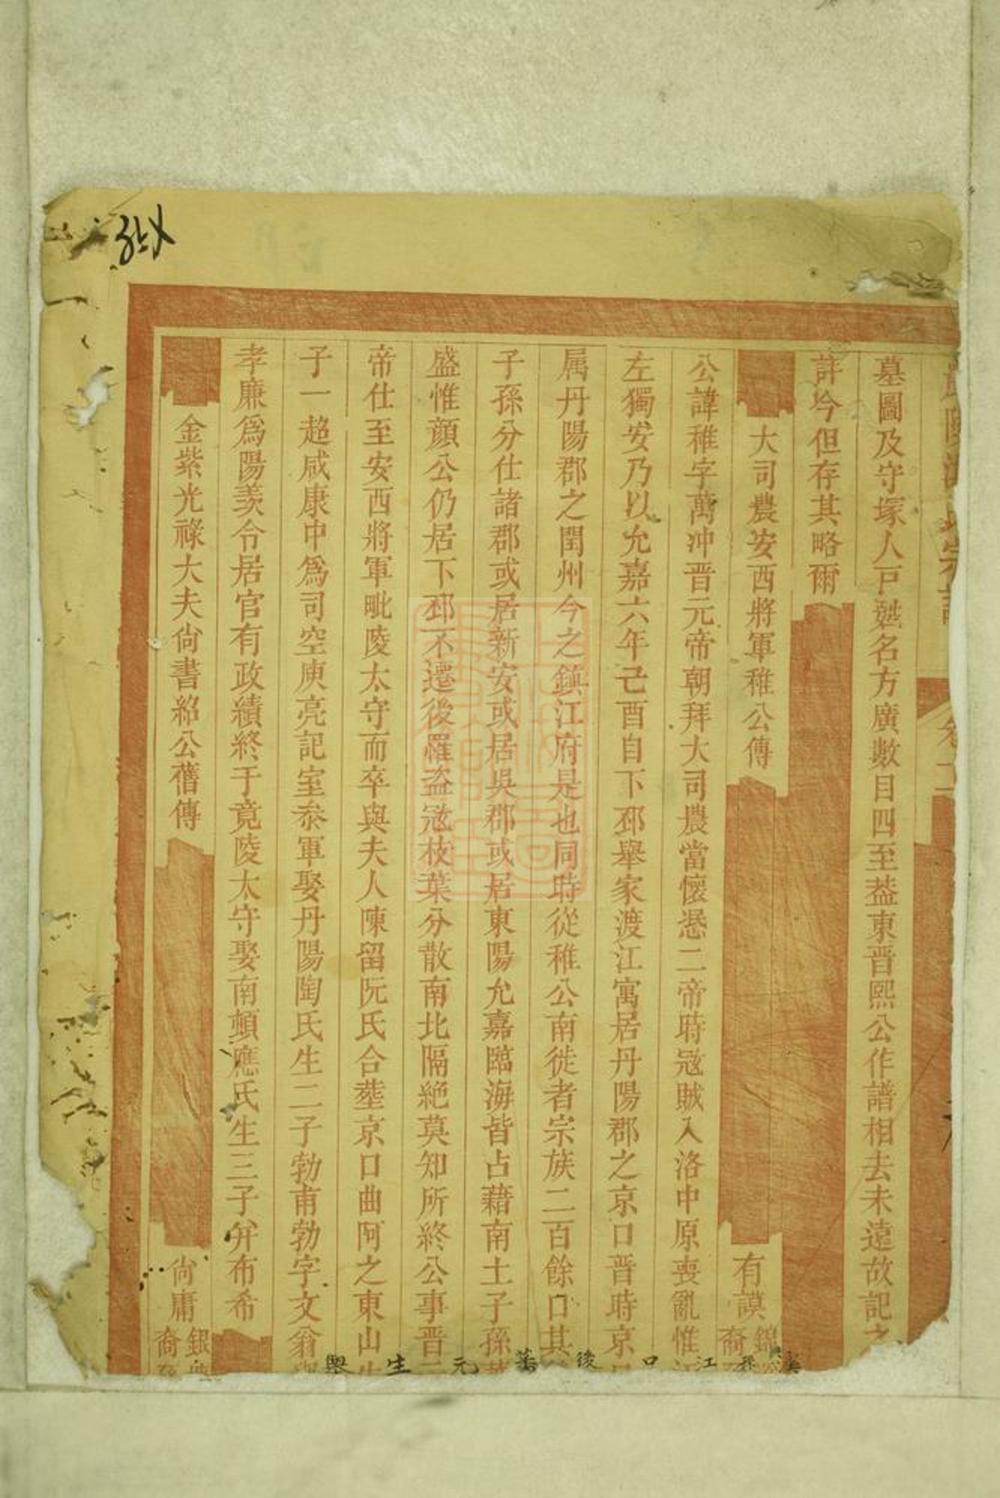 墓圖及守塚人戸甦名方廣數目四至葢東晋熙公作譜相去未遠故記之
詳今但存其略爾
大司農安西將軍稚公傳
有謨
公諱稚字萬沖晋元帝朝拜大司農當懷愍二帝時冦賊入洛中原丧亂惟江
左獨安乃以允嘉六年己酉自下邳舉家渡江寓居丹陽郡之京口晋時京口
属丹陽郡之閏州今之鎮江府是也同時從稚公南徙者宗族二百餘口其
子孫分仕諸郡或居新安或居吳郡或居東陽允嘉臨海皆占藉南土子孫
盛惟顔公仍居下邳不遷後羅盗冦枝葉分散南北隔絶莫知所終公事晋元
帝仕至安西將軍毗陵太守而卒與夫人陳留阮氏合塟京口曲阿之東山生
子一超咸康中爲司空庾亮記室叅軍娶丹陽陶氏生二子勃甫勃字文翁舉
孝廉爲陽羡令居官有政績終于竟陵太守娶南頓應氏生三子弁布希
金紫光祿大夫尙書紹公舊傳
尙庸